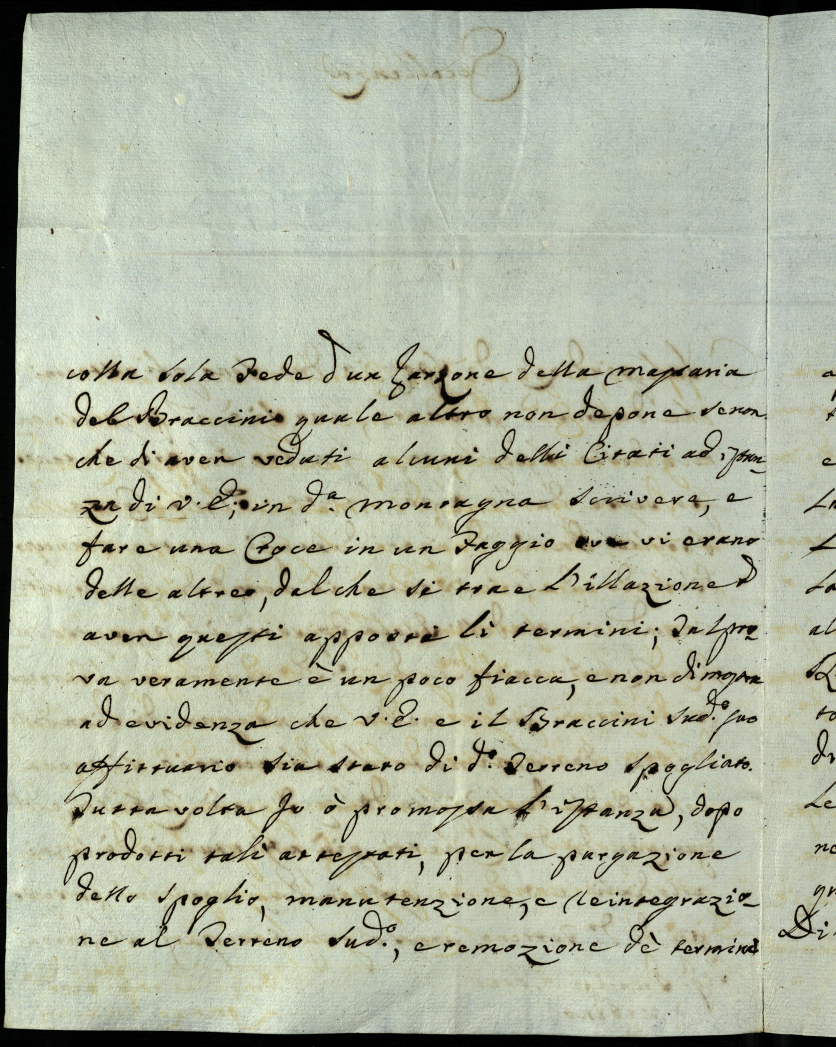 colla sola Fede d'un Garzone della massaria
del Braccini quale altro non depone senon
che di aver veduti alcuni delli Citati ad istan-
za di V. E., in d.ª montagna scrivere, e
fare una Croce in un Faggio ove vi erano
delle altre, dal che si trae l'illazione d'
aver questi apposti li termini; Tal pro-
va veramente è un poco fiacca, e non dimostra
ad evidenza che V. E. e il Braccini sud.º suo
affittuario sia stato di d.º Terreno spogliato.
Tutta volta Io ò promossa l'istanza, dopo
prodotti tali attestati, per la purgazione
dello spoglio, manutenzione, e Reintegrazio-
ne al Terreno sud.º, e remozione dè termini